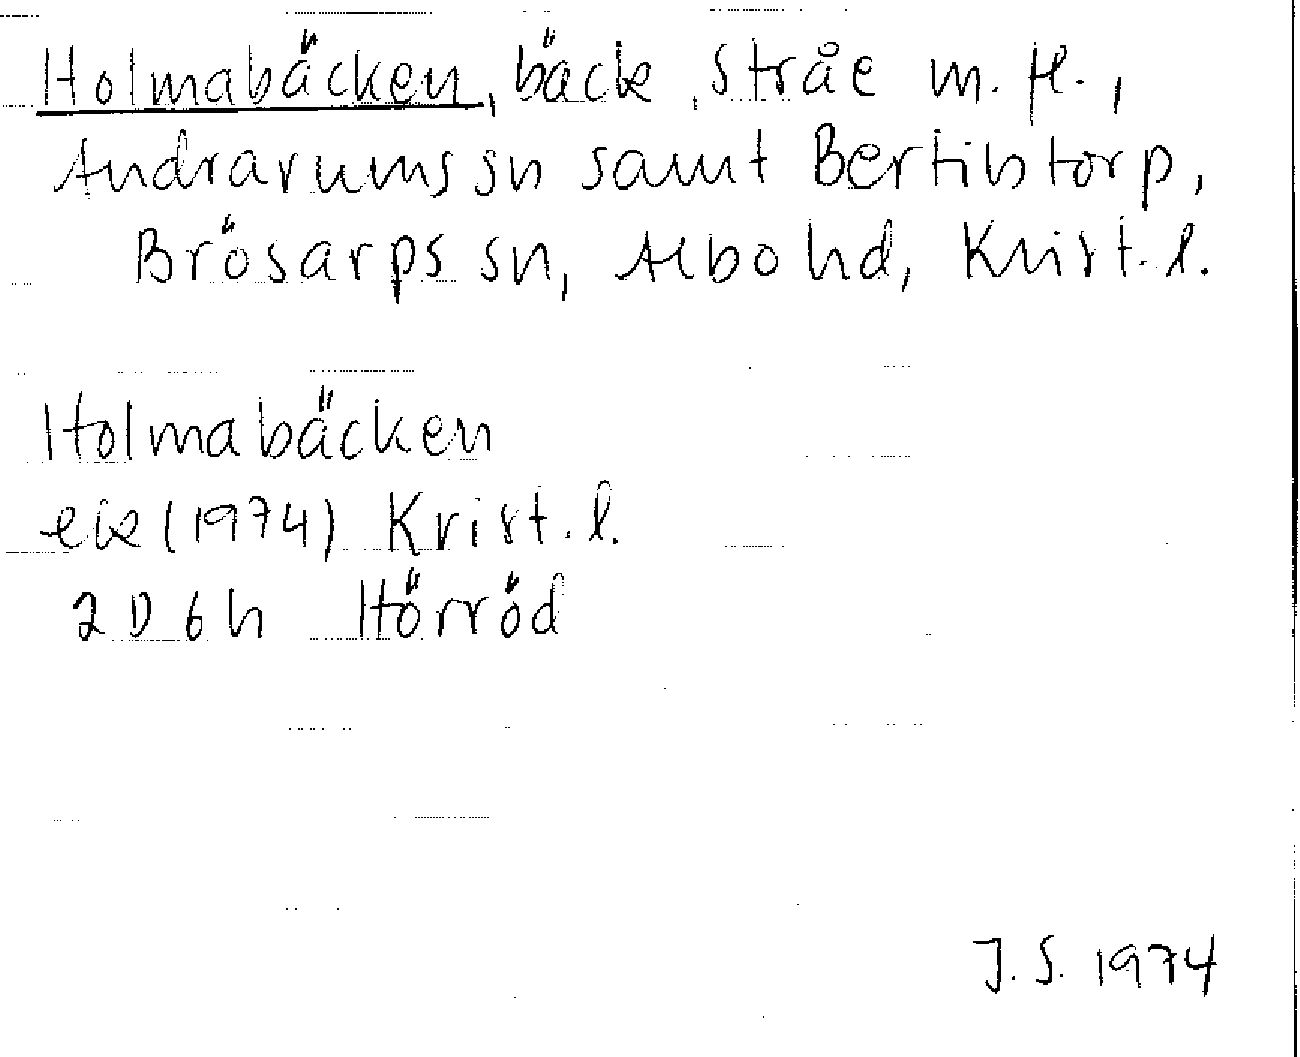 Holmabäcken, bäck, Stråe m.fl.,
Andrarums sn samt Bertilstorp,
Brösarps sn, Albo hd, Krist.l.
Holmabäcken
ek (1974) Krist.l.
2D 6h Hörröd
J.S. 1974